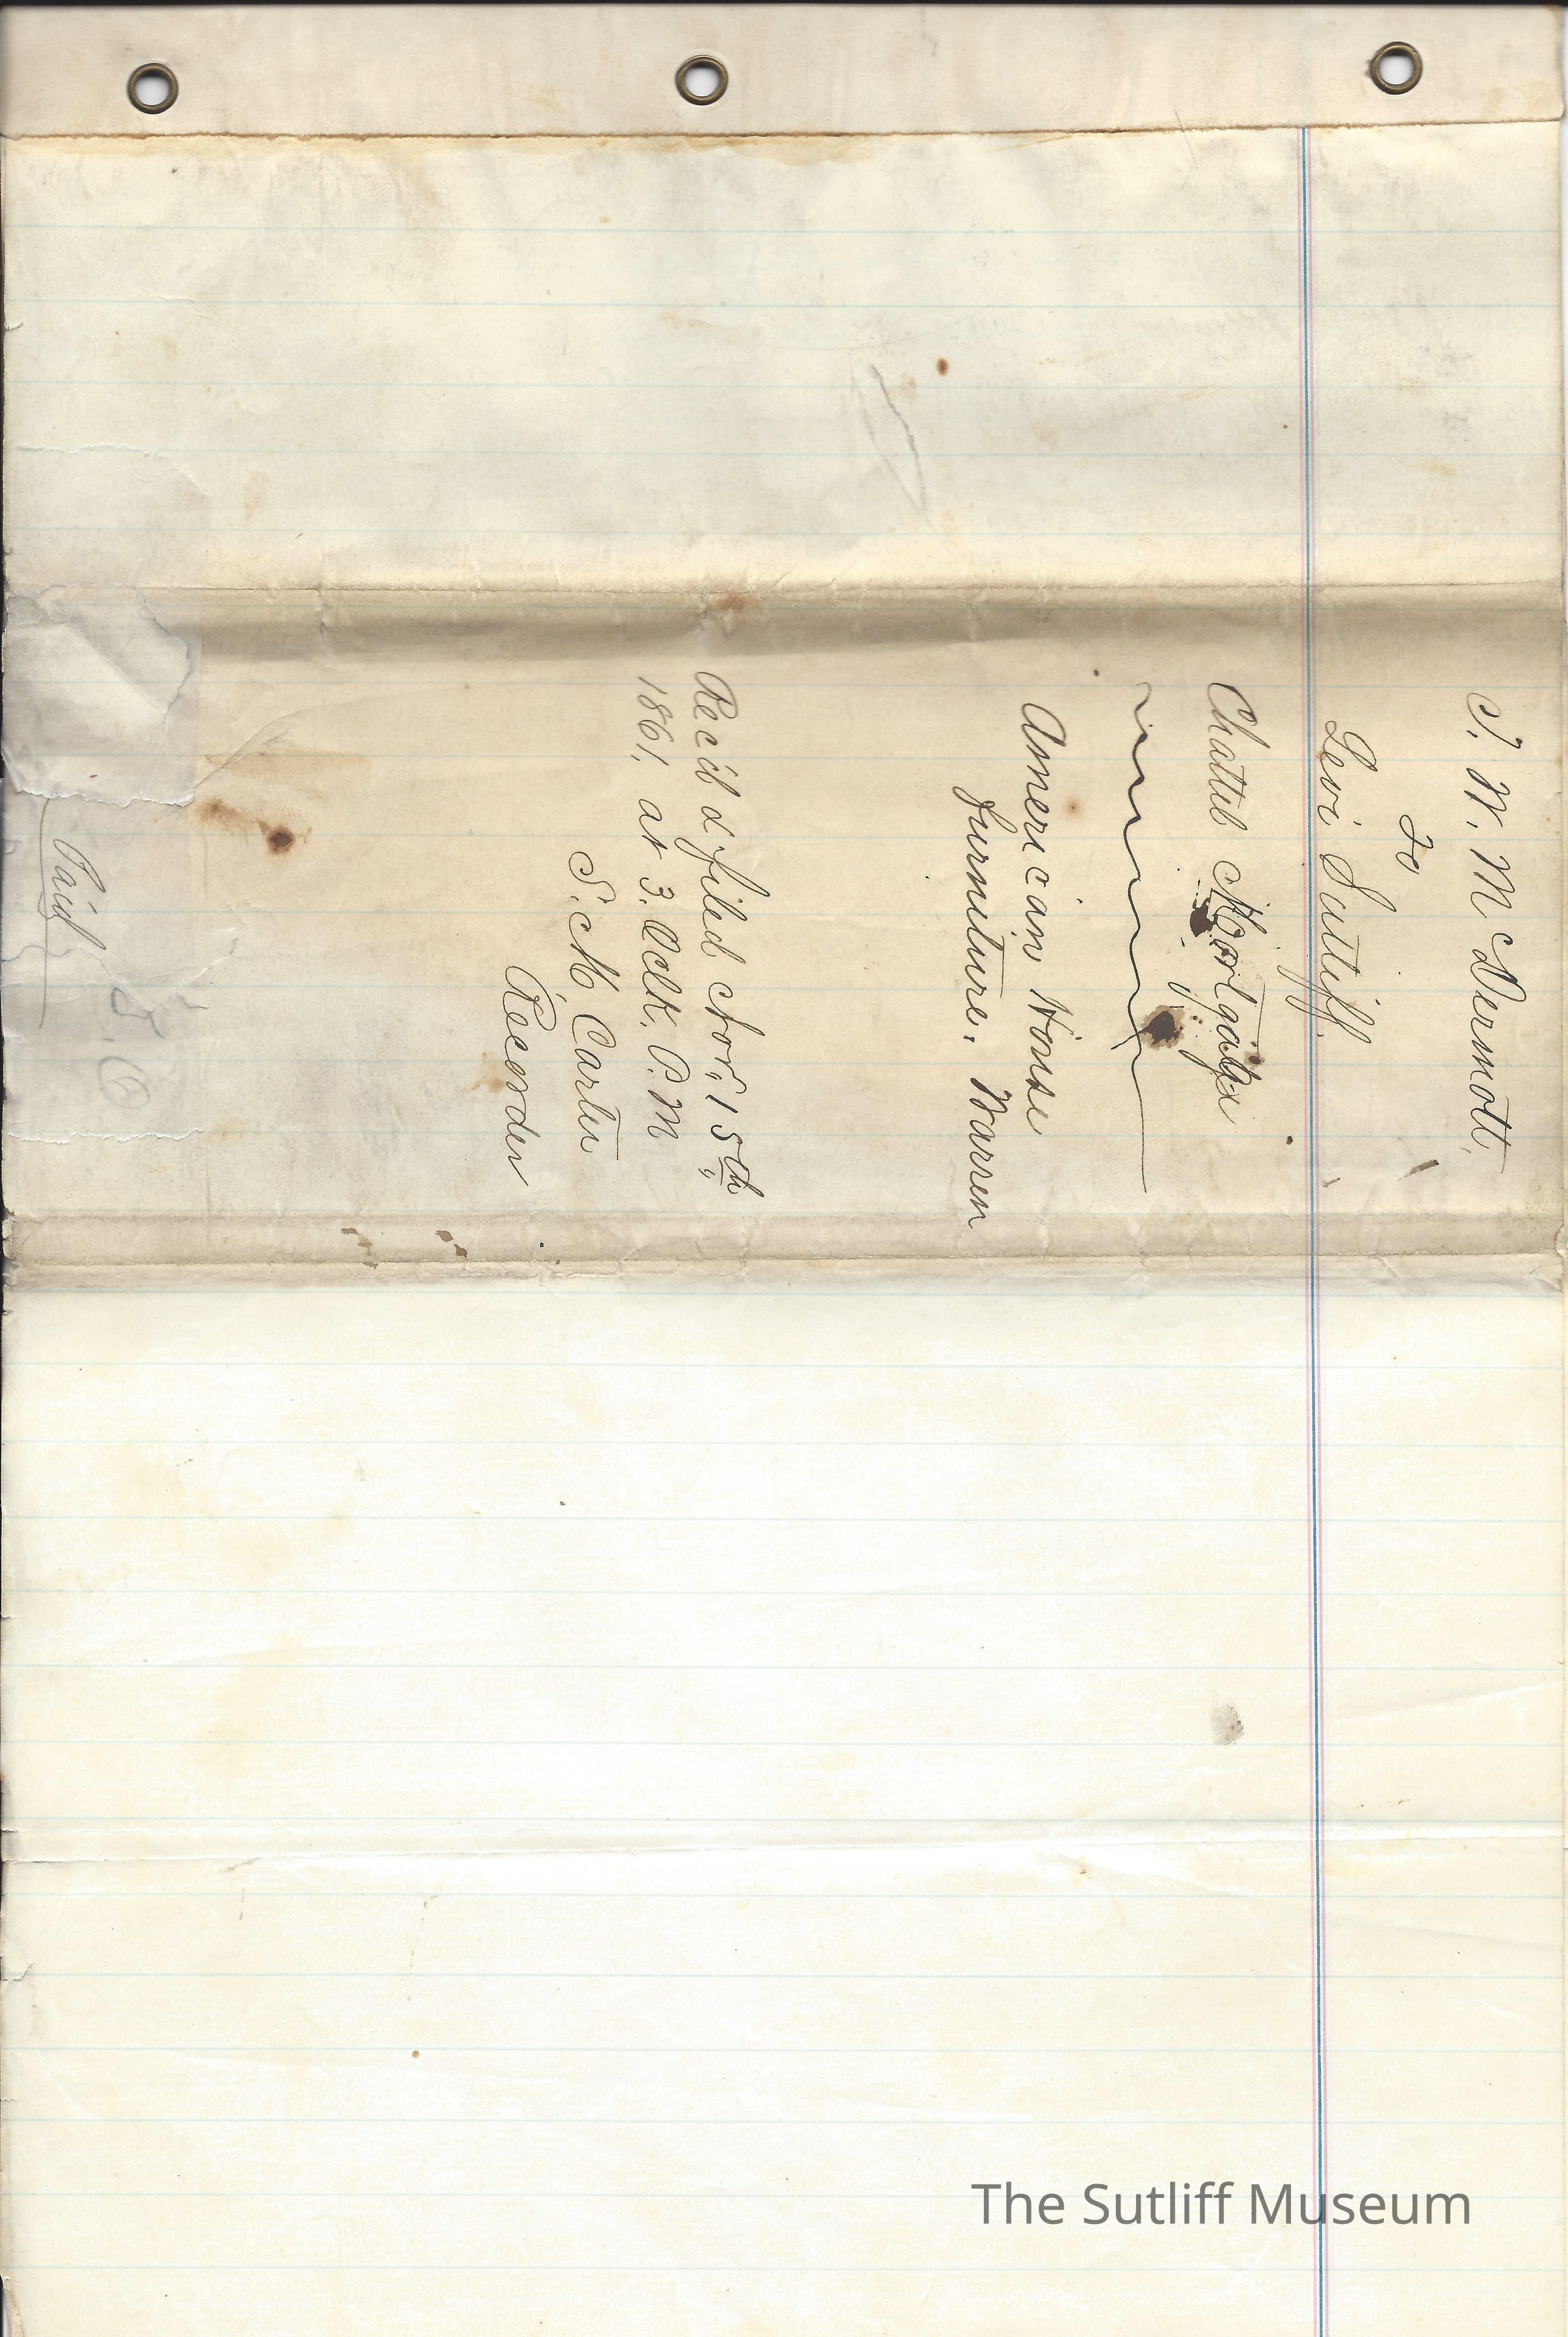 J. W. McDermott,
To
Levi Sutliff.
Chattel Mortgage
American House
Furniture. Warren
Rec'd & filed Nov. 15th
1861, at 3. Oclk. P. M
S. M Carter
Recorder
Paid
The Sutliff Museum